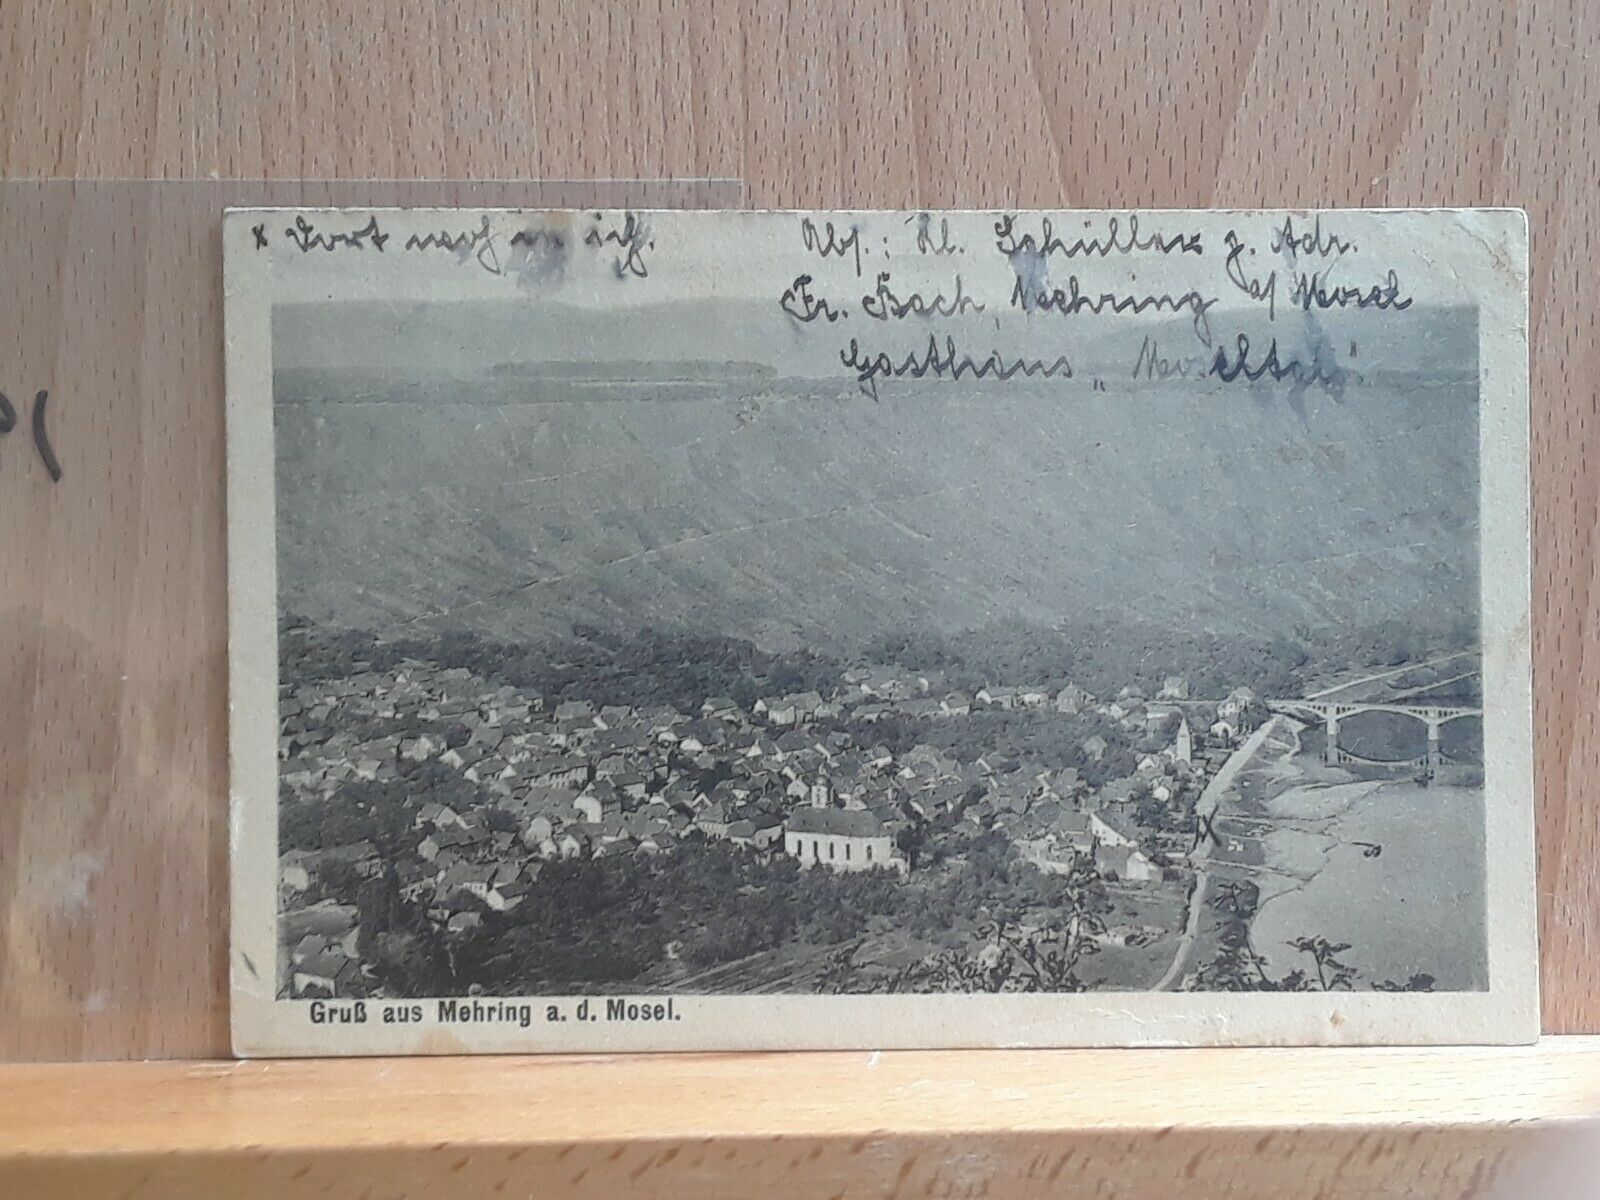 x Dort wohne ich.
Abs.: Kl. Schüller z. Adr.
Fr. Bach, Mehring a/Mosel
Gasthaus „Moseltal"
X
Gruß aus Mehring a. d. Mosel.